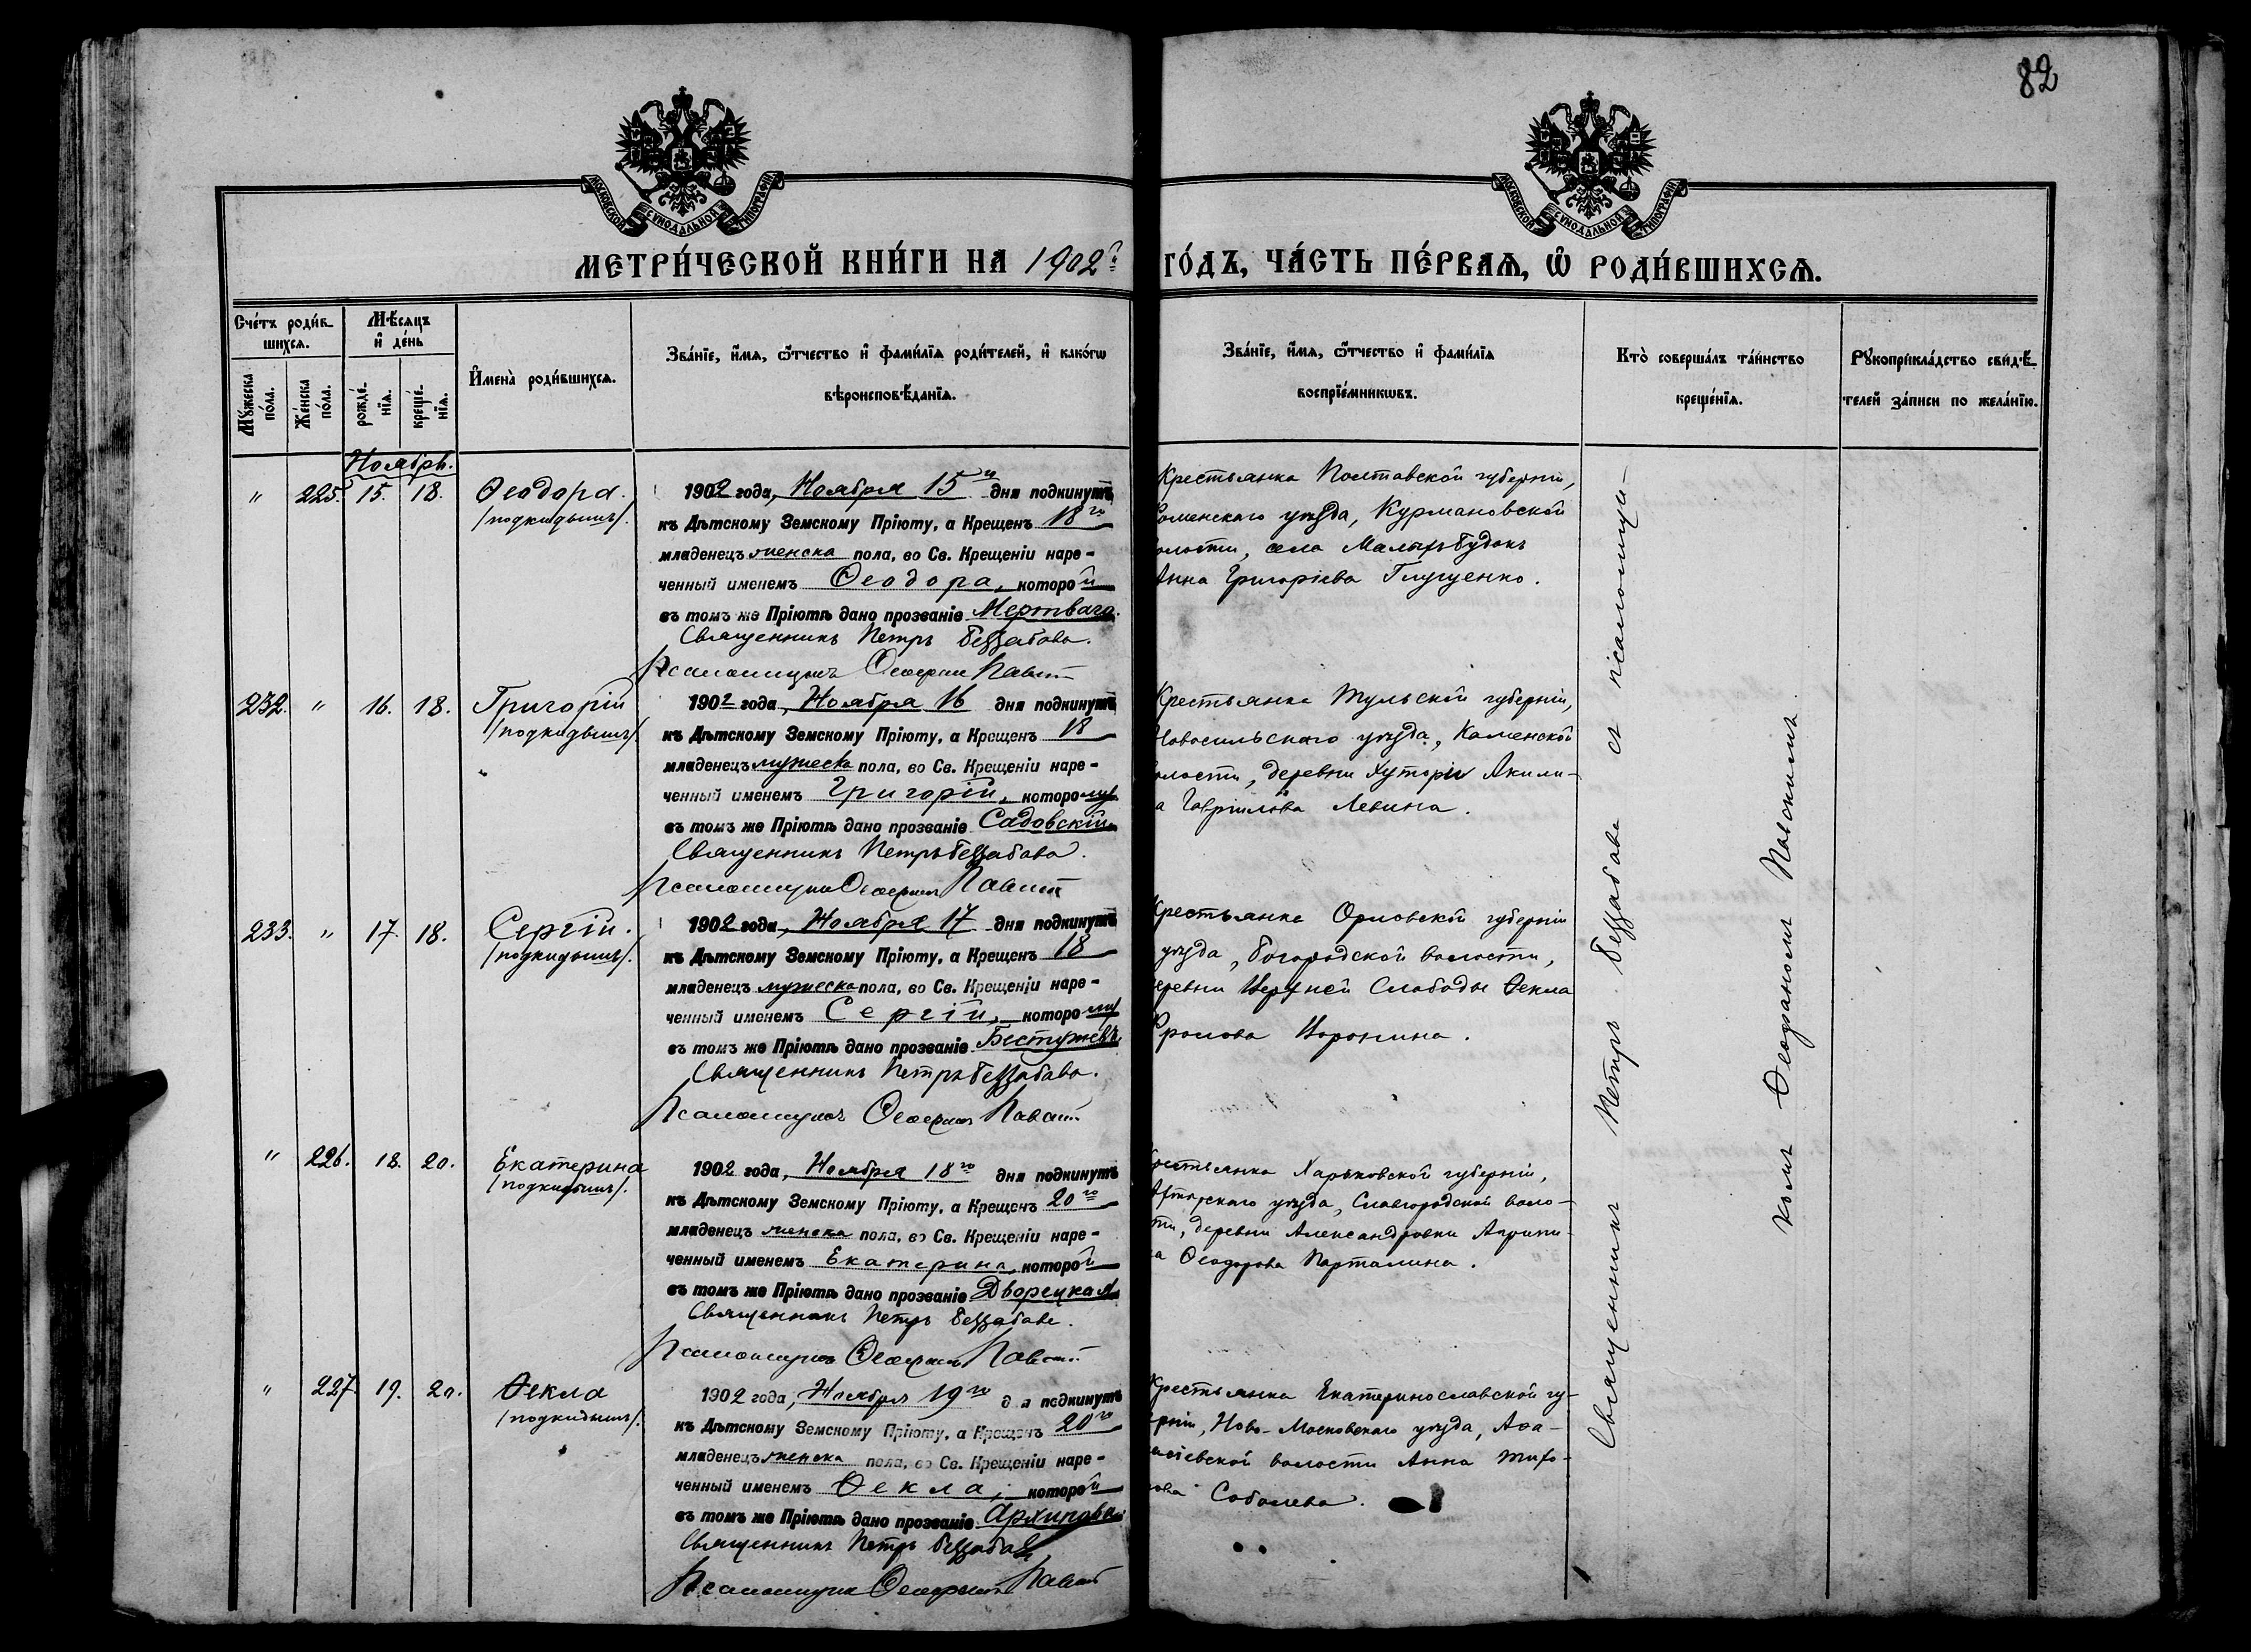 82
МОСКОВСКОЙ СѴНОДАЛЬНОЙ ТИПОГРАФІИ
МОСКОВСКОЙ СѴНОДАЛЬНОЙ ТИПОГРАФІИ
МЕТРИ́ЧЕСКОЙ КНИ́ГИ НА 1902й
ГО́ДЪ, ЧА́СТЬ ПЕ́РВАѦ, Ѡ҆ РОДИ́ВШИХСѦ.
Сче́тъ роди́в-
шихсѧ.
Мꙋ́жеска
по́ла.
Же́нска
по́ла.
Мѣ́сѧцъ
и҆ де́нь
рожде́-
нїѧ.
креще́-
нїѧ.
И҆мена̀ роди́вшихсѧ.
Зва́нїе, и҆́мѧ, ѻ҆́тчество и҆ фами́лїѧ роди́телей, и҆ како́гѡ
вѣроисповѣ́данїѧ.
Зва́нїе, и҆́мѧ, ѻ҆́тчество и҆ фами́лїѧ
воспрїе́мникѡвъ.
Кто̀ соверша́лъ та́инство
креще́нїѧ.
Рꙋкоприкла́дство свидѣ́-
телей за́писи по жела́нїю.
Ноябрь.
" 225. 15. 18. Ѳеодора.
/подкидышъ/.
1902 года, Ноября 15го дня подкинутъ
къ Дѣтскому Земскому Пріюту, а Крещенъ 18го
младенецъ женска пола, во Св. Крещеніи наре-
ченный именемъ Ѳеодора, которой
въ томъ же Пріютѣ дано прозваніе Мертваго.
Священникъ Петръ Беззабава.
Псаломщикъ Ѳеофанъ
Крестьянка Полтавской губерніи,
оменскаго уѣзда, Курмановской
олости, села Малыхъ Будокъ
Анна Григоріева
232. " 16. 18. Григорій
/подкидышъ/.
1902 года, Ноября 16 дня подкинутъ
къ Дѣтскому Земскому Пріюту, а Крещенъ 18
младенецъ мужеска пола, во Св. Крещеніи наре-
ченный именемъ Григорій, которому
въ томъ же Пріютѣ дано прозваніе Садовскій
Священникъ Петръ Беззабава.
Псаломщикъ Ѳеофанъ
Крестьянка Тульской губерніи,
Новосильскаго уѣзда, Каменской
олости, деревни Хуторы Акили-
а Гавріилова Левина.
233. " 17. 18. Сергій.
/подкидышъ/.
1902 года, Ноября 17 дня подкинутъ
къ Дѣтскому Земскому Пріюту, а Крещенъ 18
младенецъ мужеска пола, во Св. Крещеніи наре-
ченный именемъ Сергій, которому
въ томъ же Пріютѣ дано прозваніе Бестужевъ
Священникъ Петръ Беззабава.
Псаломщикъ Ѳеофанъ
Крестьянка Орловской губерніи
уѣзда, Богородской волости,
еревни Верхней Слободы Ѳекла
Фролова Воронина.
" 226. 18. 20. Екатерина
/подкидышъ/.
1902 года, Ноября 18го дня подкинутъ
къ Дѣтскому Земскому Пріюту, а Крещенъ 20го
младенецъ женска пола, во Св. Крещеніи наре-
ченный именемъ Екатерина, которой
въ томъ же Пріютѣ дано прозваніе Дворецкая
Священникъ Петръ Беззабава.
Псаломщикъ Ѳеофанъ
рестьянка Харьковской губерніи,
Ахтырскаго уѣзда, Славгородской воло-
ти, деревни Александровки
а Ѳеодорова Парталина.
" 227. 19. 20. Ѳекла
/подкидышъ/.
1902 года, Ноября 19го дня подкинутъ
къ Дѣтскому Земскому Пріюту, а Крещенъ 20го
младенецъ женска пола, во Св. Крещеніи наре-
ченный именемъ Ѳекла, которой
въ томъ же Пріютѣ дано прозваніе Архипова
Священникъ Петръ Беззабава
Псаломщикъ Ѳеофанъ
Крестьянка Екатеринославской гу-
ерніи, Ново-Московскаго уѣзда, Аѳа-
асіевской волости Анна Тихо-
ова Соболева.
Священникъ Петръ Беззабава съ псаломщи-
комъ Ѳеофаномъ Павскимъ